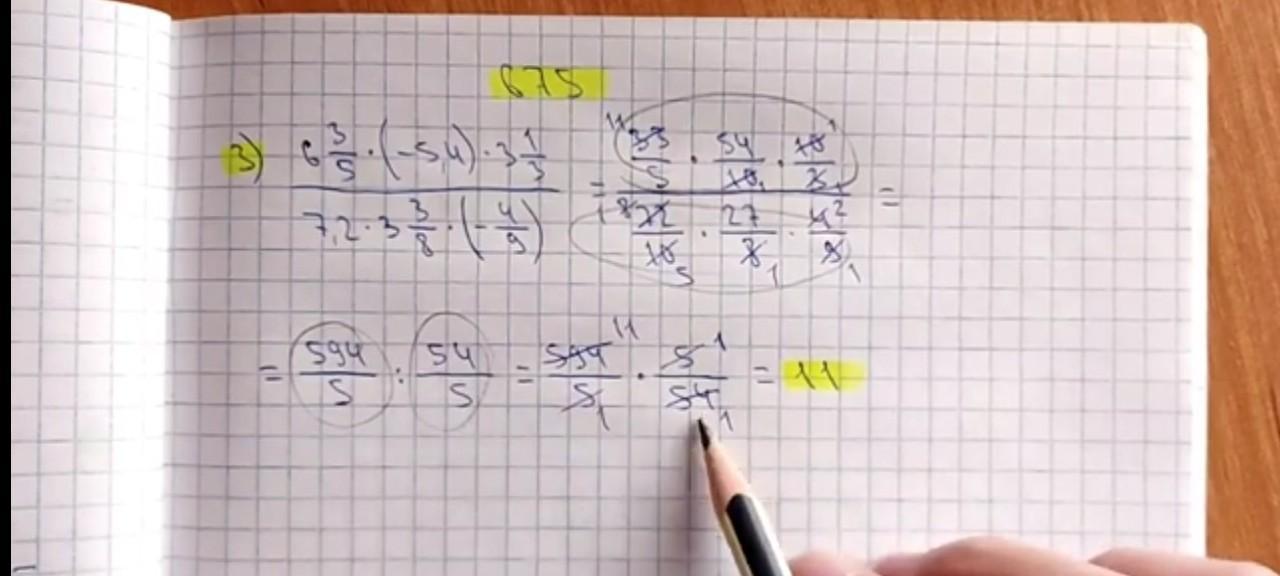 675
3) 6 3/5 · (-5,4) · 3 1/3 / 7,2 · 3 3/8 · (-4/9) = 33/5 · 54/10 · 10/3 / 72/10 · 27/8 · 4/9 =
= 594/5 : 54/5 = 594/5 · 5/54 = 11